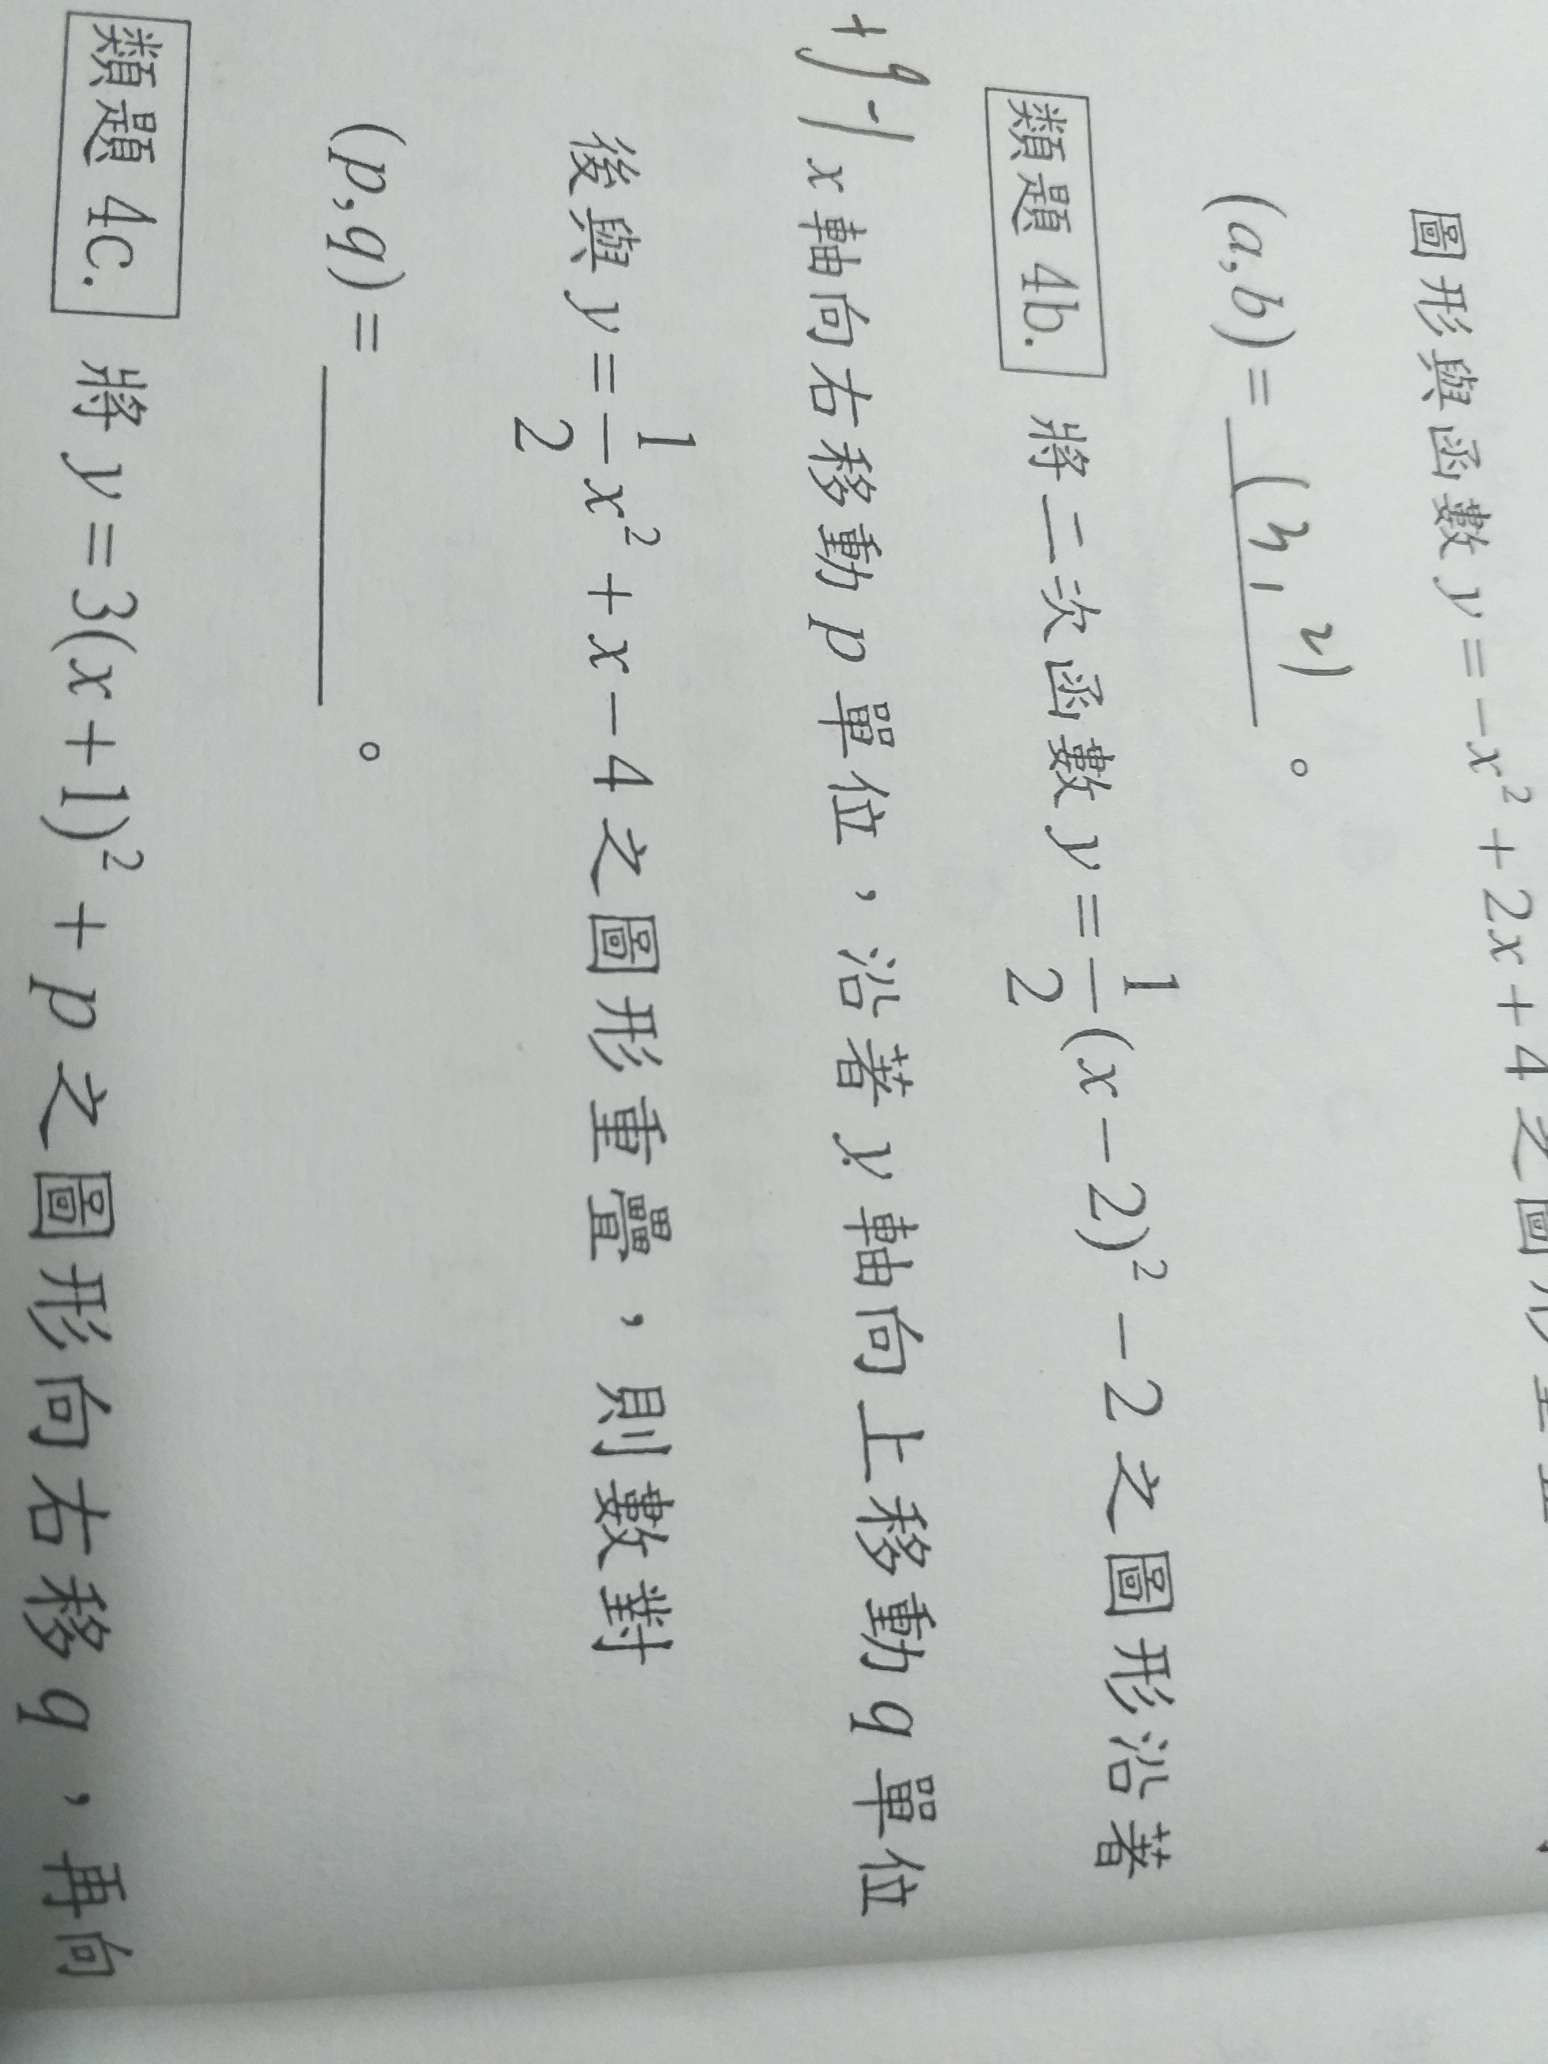 圖形與函數 y = -x² + 2x + 4 之圖形
(a,b) = (3, 2) 。
類題 4b. 將二次函數 y = 1/2 (x - 2)² - 2 之圖形沿著
x 軸向右移動 p 單位，沿著 y 軸向上移動 q 單位
後與 y = 1/2 x² + x - 4 之圖形重疊，則數對
(p,q) = ________ 。
類題 4c. 將 y = 3(x + 1)² + p 之圖形向右移 q ，再向